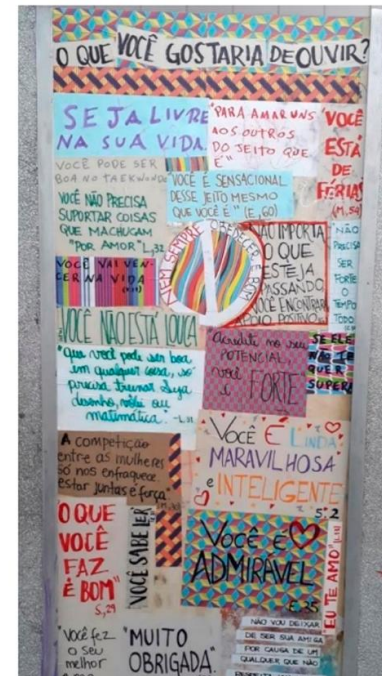 O QUE VOCÊ GOSTARIA DE OUVIR?
SEJA LIVRE
NA SUA VIDA.
"PARA AMAR UNS
AOS OUTROS
DO JEITO QUE
É"
"VOCÊ
ESTÁ
DE
FÉRIAS"
(M, 54)
VOCÊ PODE SER
BOA NO TAEKWONDO
"VOCÊ É SENSACIONAL
DESSE JEITO MESMO
QUE VOCÊ É" (E, 60)
VOCÊ NÃO PRECISA
SUPORTAR COISAS
QUE MACHUGAM
"POR AMOR" L, 32
NEM SEMPRE OBEDECER É BOM
NÃO IMPORTA
O QUE
ESTEJA
PASSANDO,
VOCÊ ENCONTRARÁ
APOIO POSITIVO
"NÃO
PRECISA
SER
FORTE
TEMPO
TODO
VOCÊ VAI VEN-
CER NA VIDA
VOCÊ NÃO ESTÁ LOUCA
"Que você pode ser boa
em qualquer coisa, só
precisa treinar. Seja
desenho, vôlei ou
matemática."
Acredite no seu
POTENCIAL
você
é FORTE
SE ELE
NÃO TE
QUER
SUPERA
A competição
entre as mulheres
só nos enfraquece
estar juntas é força.
VOCÊ É LINDA
MARAVILHOSA
e INTELIGENTE
52
"O QUE
VOCÊ
FAZ
É BOM"
S, 29
VOCÊ SABE LER
VOCÊ É
ADMIRÁVEL
E, 25
"EU TE AMO"
"Você fez
o seu
melhor
"MUITO
OBRIGADA".
NÃO VOU DEIXAR
DE SER SUA AMIGA
POR CAUSA DE UM
QUALQUER QUE NÃO